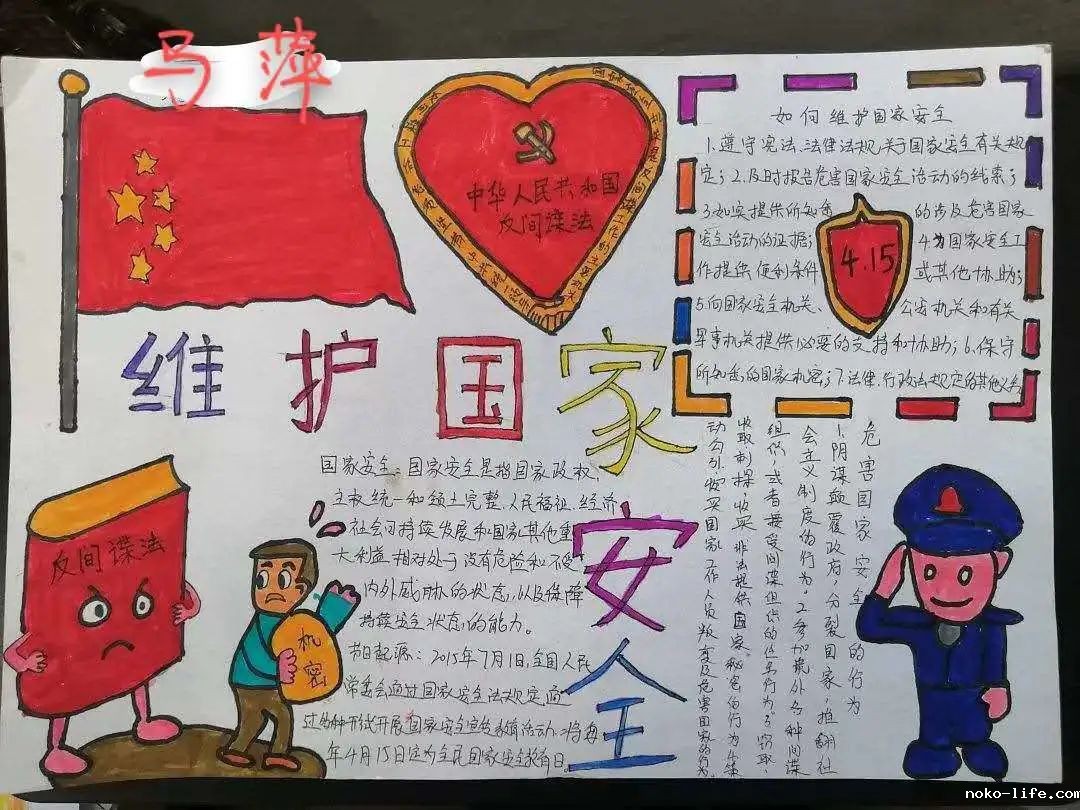 马萍
中华人民共和国
反间谍法
如何维护国家安全
1.遵守宪法、法律法规关于国家安全有关规
定；2.及时报告危害国家安全活动的线索；
3.如实提供所知悉的涉及危害国家
安全活动的证据；4.为国家安全工
作提供便利条件或其他协助；
5.向国家安全机关、公安机关和有关
军事机关提供必要的支持和协助；6.保守
所知悉的国家秘密；7.法律、行政法规规定的其他义务
4.15
维护国家安全
反间谍法
机密
国家安全：国家安全是指国家政权、
主权统一和领土完整、人民福祉、经济
社会可持续发展和国家其他重
大利益相对处于没有危险和不受
内外威胁的状态，以及保障
持续安全状态的能力。
节日起源：2015年7月1日，全国人民
常委会通过国家安全法规定，通
过多种形式开展国家安全宣传教育活动，将每
年4月15日定为全民国家安全教育日。
危害国家安全的行为
1.阴谋颠覆政府，分裂国家，推翻社
会主义制度的行为，2.参加境外各种间谍
组织或者接受间谍组织的任务行为3.窃取、
收取刺探、收买、非法提供国家秘密的行为4.策
动勾引、收买国家工作人员叛变及危害国家的行为。
noko-life.com